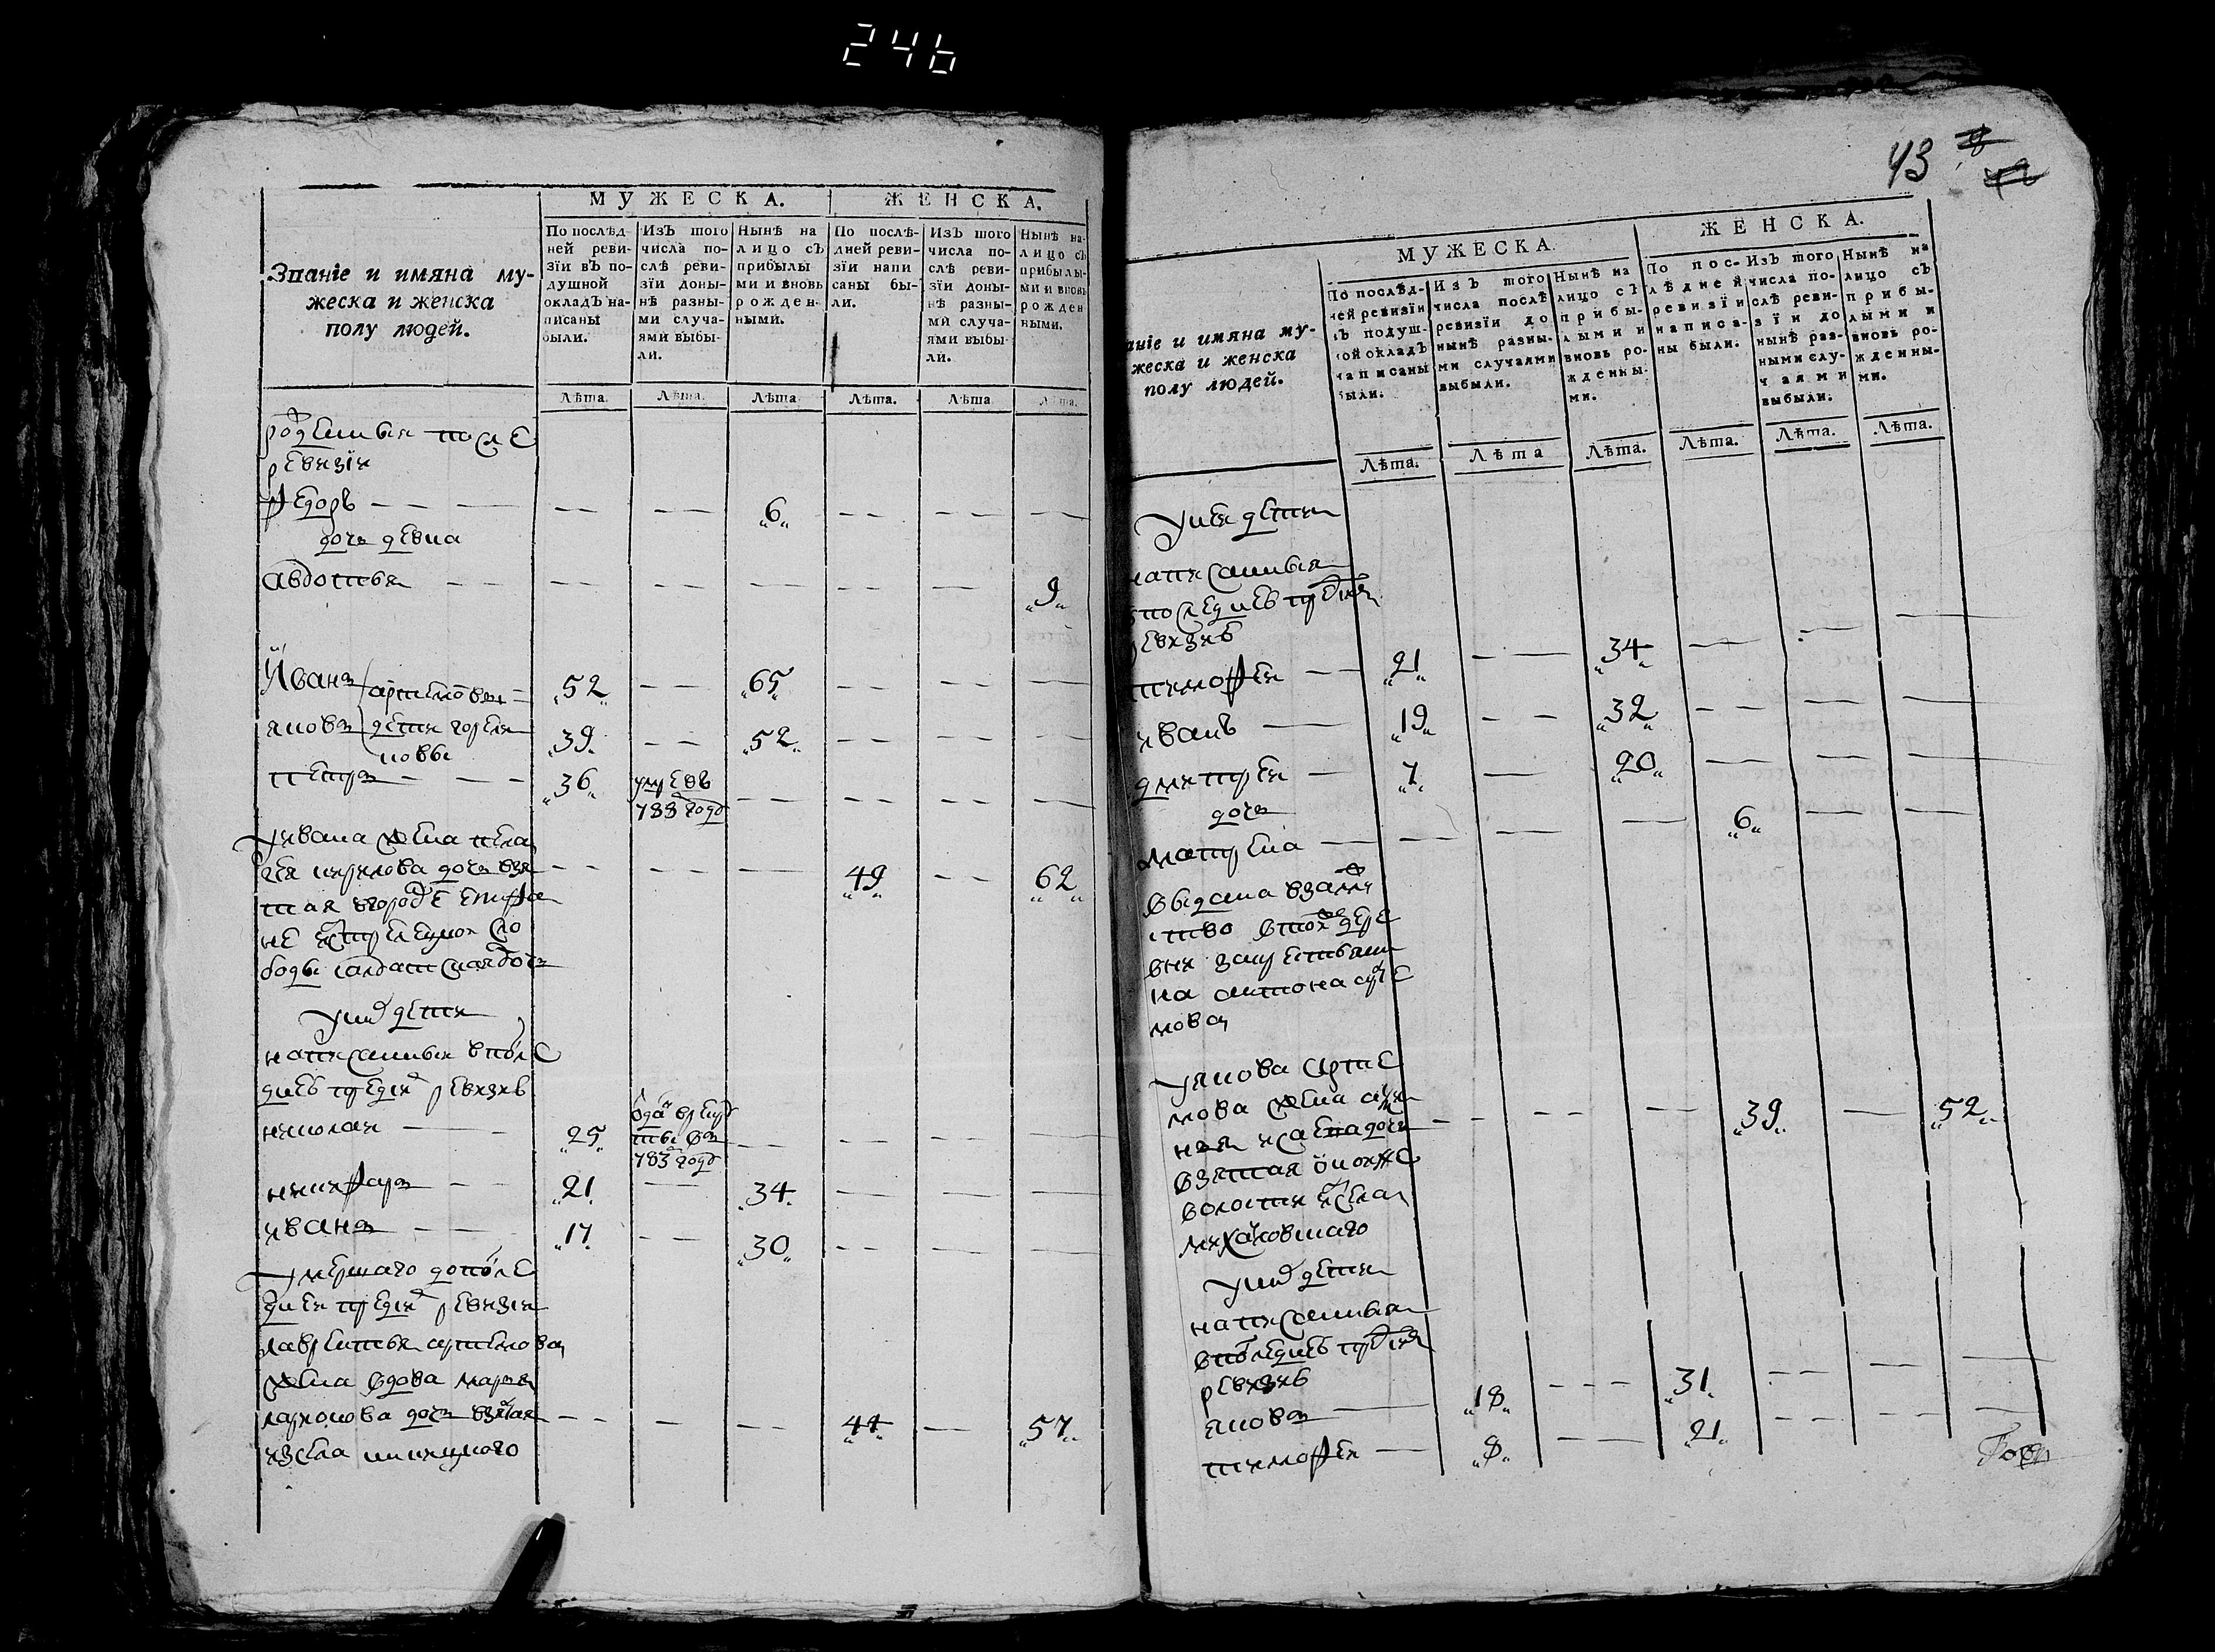 246
МУЖЕСКА. ЖЕНСКА.
Званїе и имяна му-
жеска и женска
полу людей.
По послѣд-
ней реви-
зїи въ по-
душной
окладъ на-
писаны
были.
Изъ того
числа по-
слѣ реви-
зїи доны-
нѣ разны-
ми случа-
ями выбы-
ли.
Нынѣ на
лицо съ
прибылы
ми и вновь
рожден-
ными.
По послѣ-
дней реви-
зїи напи
саны бы-
ли.
Изъ того
числа по-
слѣ реви-
зїи доны-
нѣ разны-
ми случа-
ями выбы
ли.
Нынѣ на-
лицо съ
прибылы-
ми и вновь
рожден
ными.
Лѣта. Лѣта. Лѣта Лѣта. Лѣта Лѣта.
рожденныя после
ревизїи
Федоръ — — — — — — — „6„ — — — — — —
дочь девка
авдотья — — — — — — — — — — — — „9„
Иванъ артемовы „52„ — — „65„ — — — — —
яковъ дети горели „39„ — — „52„ — — — — —
ковы
петръ — — — „36„ умре въ
788 году — — — — — — —
у ивана жена пела
гея кирилова дочь взя — — — — — „49„ — — „62„
тая вгороде епифа
не истрелецкой сло
боды салдатская дочь
у них дети
написанныя в после
днеь пред сеи ревизиь
николаи — — „25„ одан врекру
ты въ
783 году — — — — — —
никифаръ — — „21„ — „34„ — — —
иванъ — — „17„ — — „30„ — — — — —
умершаго до после
днеи пред сеи ревизии
лаврентья артемова
жена вдова марья
ларионова дочь взятая — — — — „44„ — „57„
изсела никицкого
43
МУЖЕСКА. ЖЕНСКА.
анїе и имяна му-
жеска и женска
полу людей.
По послѣд-
ней ревизїи
въ подуш-
ной окладъ
написаны
были.
Изъ того
числа послѣ
ревизїи до
нынѣ разны-
ми случаями
выбыли.
Нынѣ на
лицо съ
прибы-
лыми и
вновь ро-
жденны-
ми.
По пос-
лѣдней
ревизїи
написа-
ны были.
Изъ того
числа по-
слѣ реви-
зїи до
нынѣ раз-
ными слу-
чаями
выбыли.
Нынѣ на
лицо съ
прибы-
лыми и
вновь ро-
жденны-
ми.
Лѣта. Лѣта Лѣта. Лѣта. Лѣта. Лѣта.
у неи дети
написанныя
впоследнеь пред сеи
ревизиь
тимофеи — — „21„ — — „34„ — — —
иванъ — „19„ — — „32„ — — — — —
дмитреи — „7„ — „20„ — — — —
дочь
матрена — — — — — „6„ — —
выдана взаму
ство втои же дере
вни закрестьяни
на антона арте
мова
у якова арте
мова жена
дочь — — — — — „39„ — „52„
взятая оной же
волости исела
михаиловскаго
у них дети
написанныя
впоследнеь пред сеи
ревизиь
яковъ — „18„ — — — „31„ — — — —
тимофеи — „8„ — — „21„ — — — — —